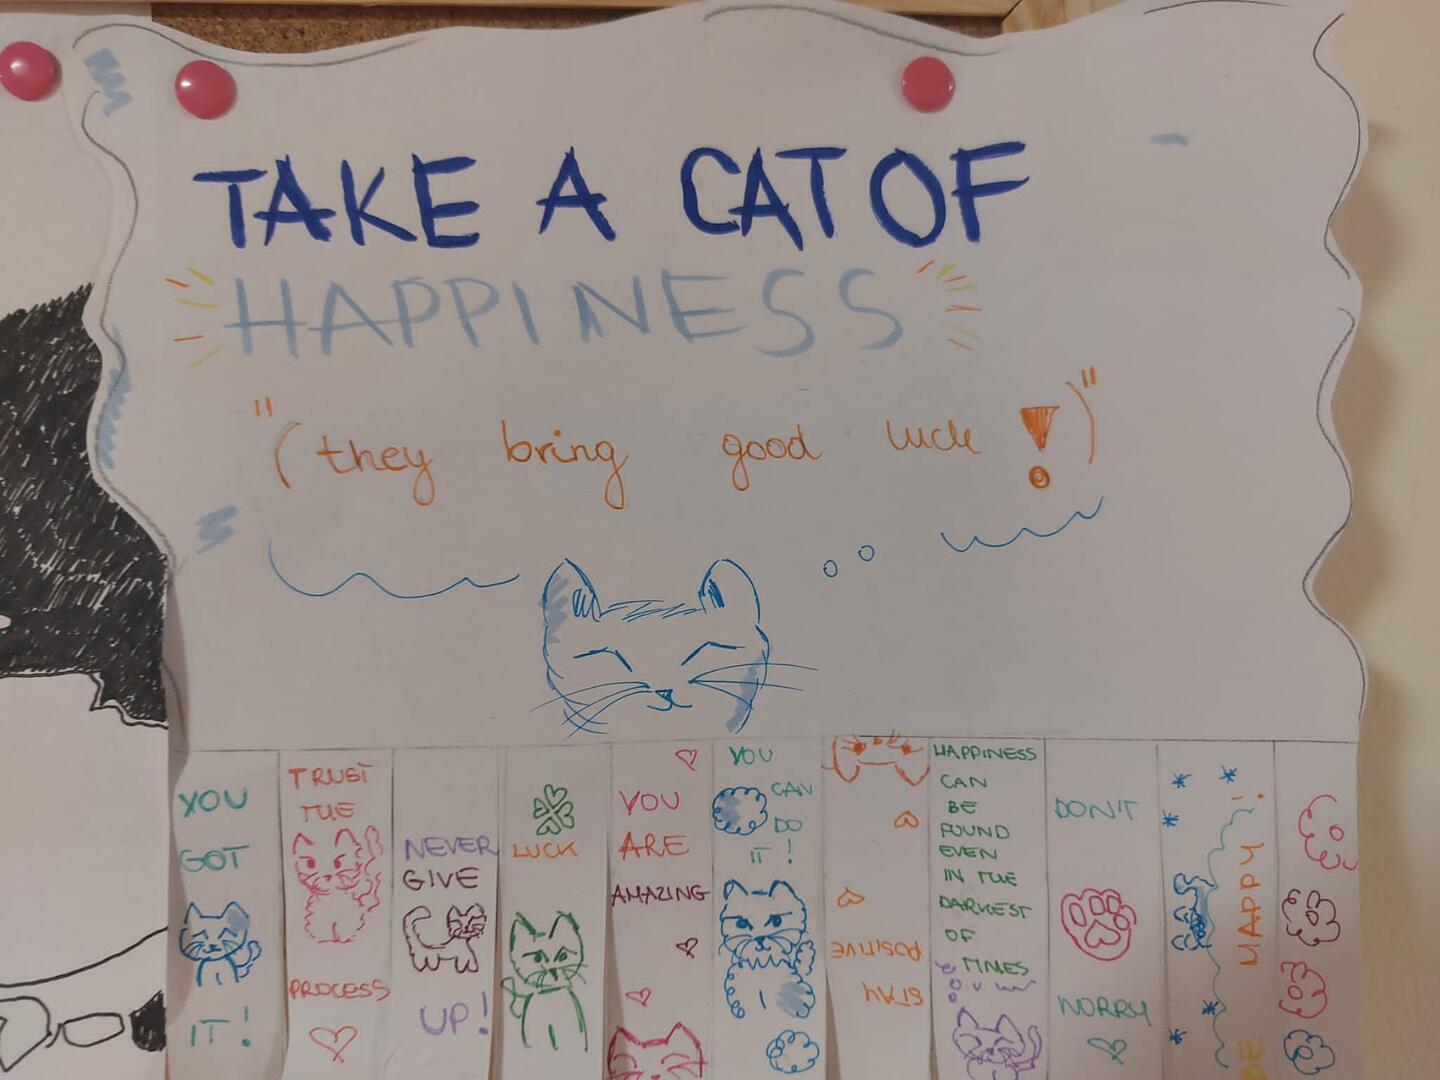 TAKE A CAT OF
HAPPINESS
"(they bring good luck!)"
YOU
GOT
IT!
TRUST
THE
PROCESS
NEVER
GIVE
UP!
LUCK
YOU
ARE
AMAZING
YOU
CAN
DO
IT!
STAY
POSITIVE
HAPPINESS
CAN
BE
FOUND
EVEN
IN THE
DARKEST
OF
TIMES
DON'T
WORRY
BE HAPPY!